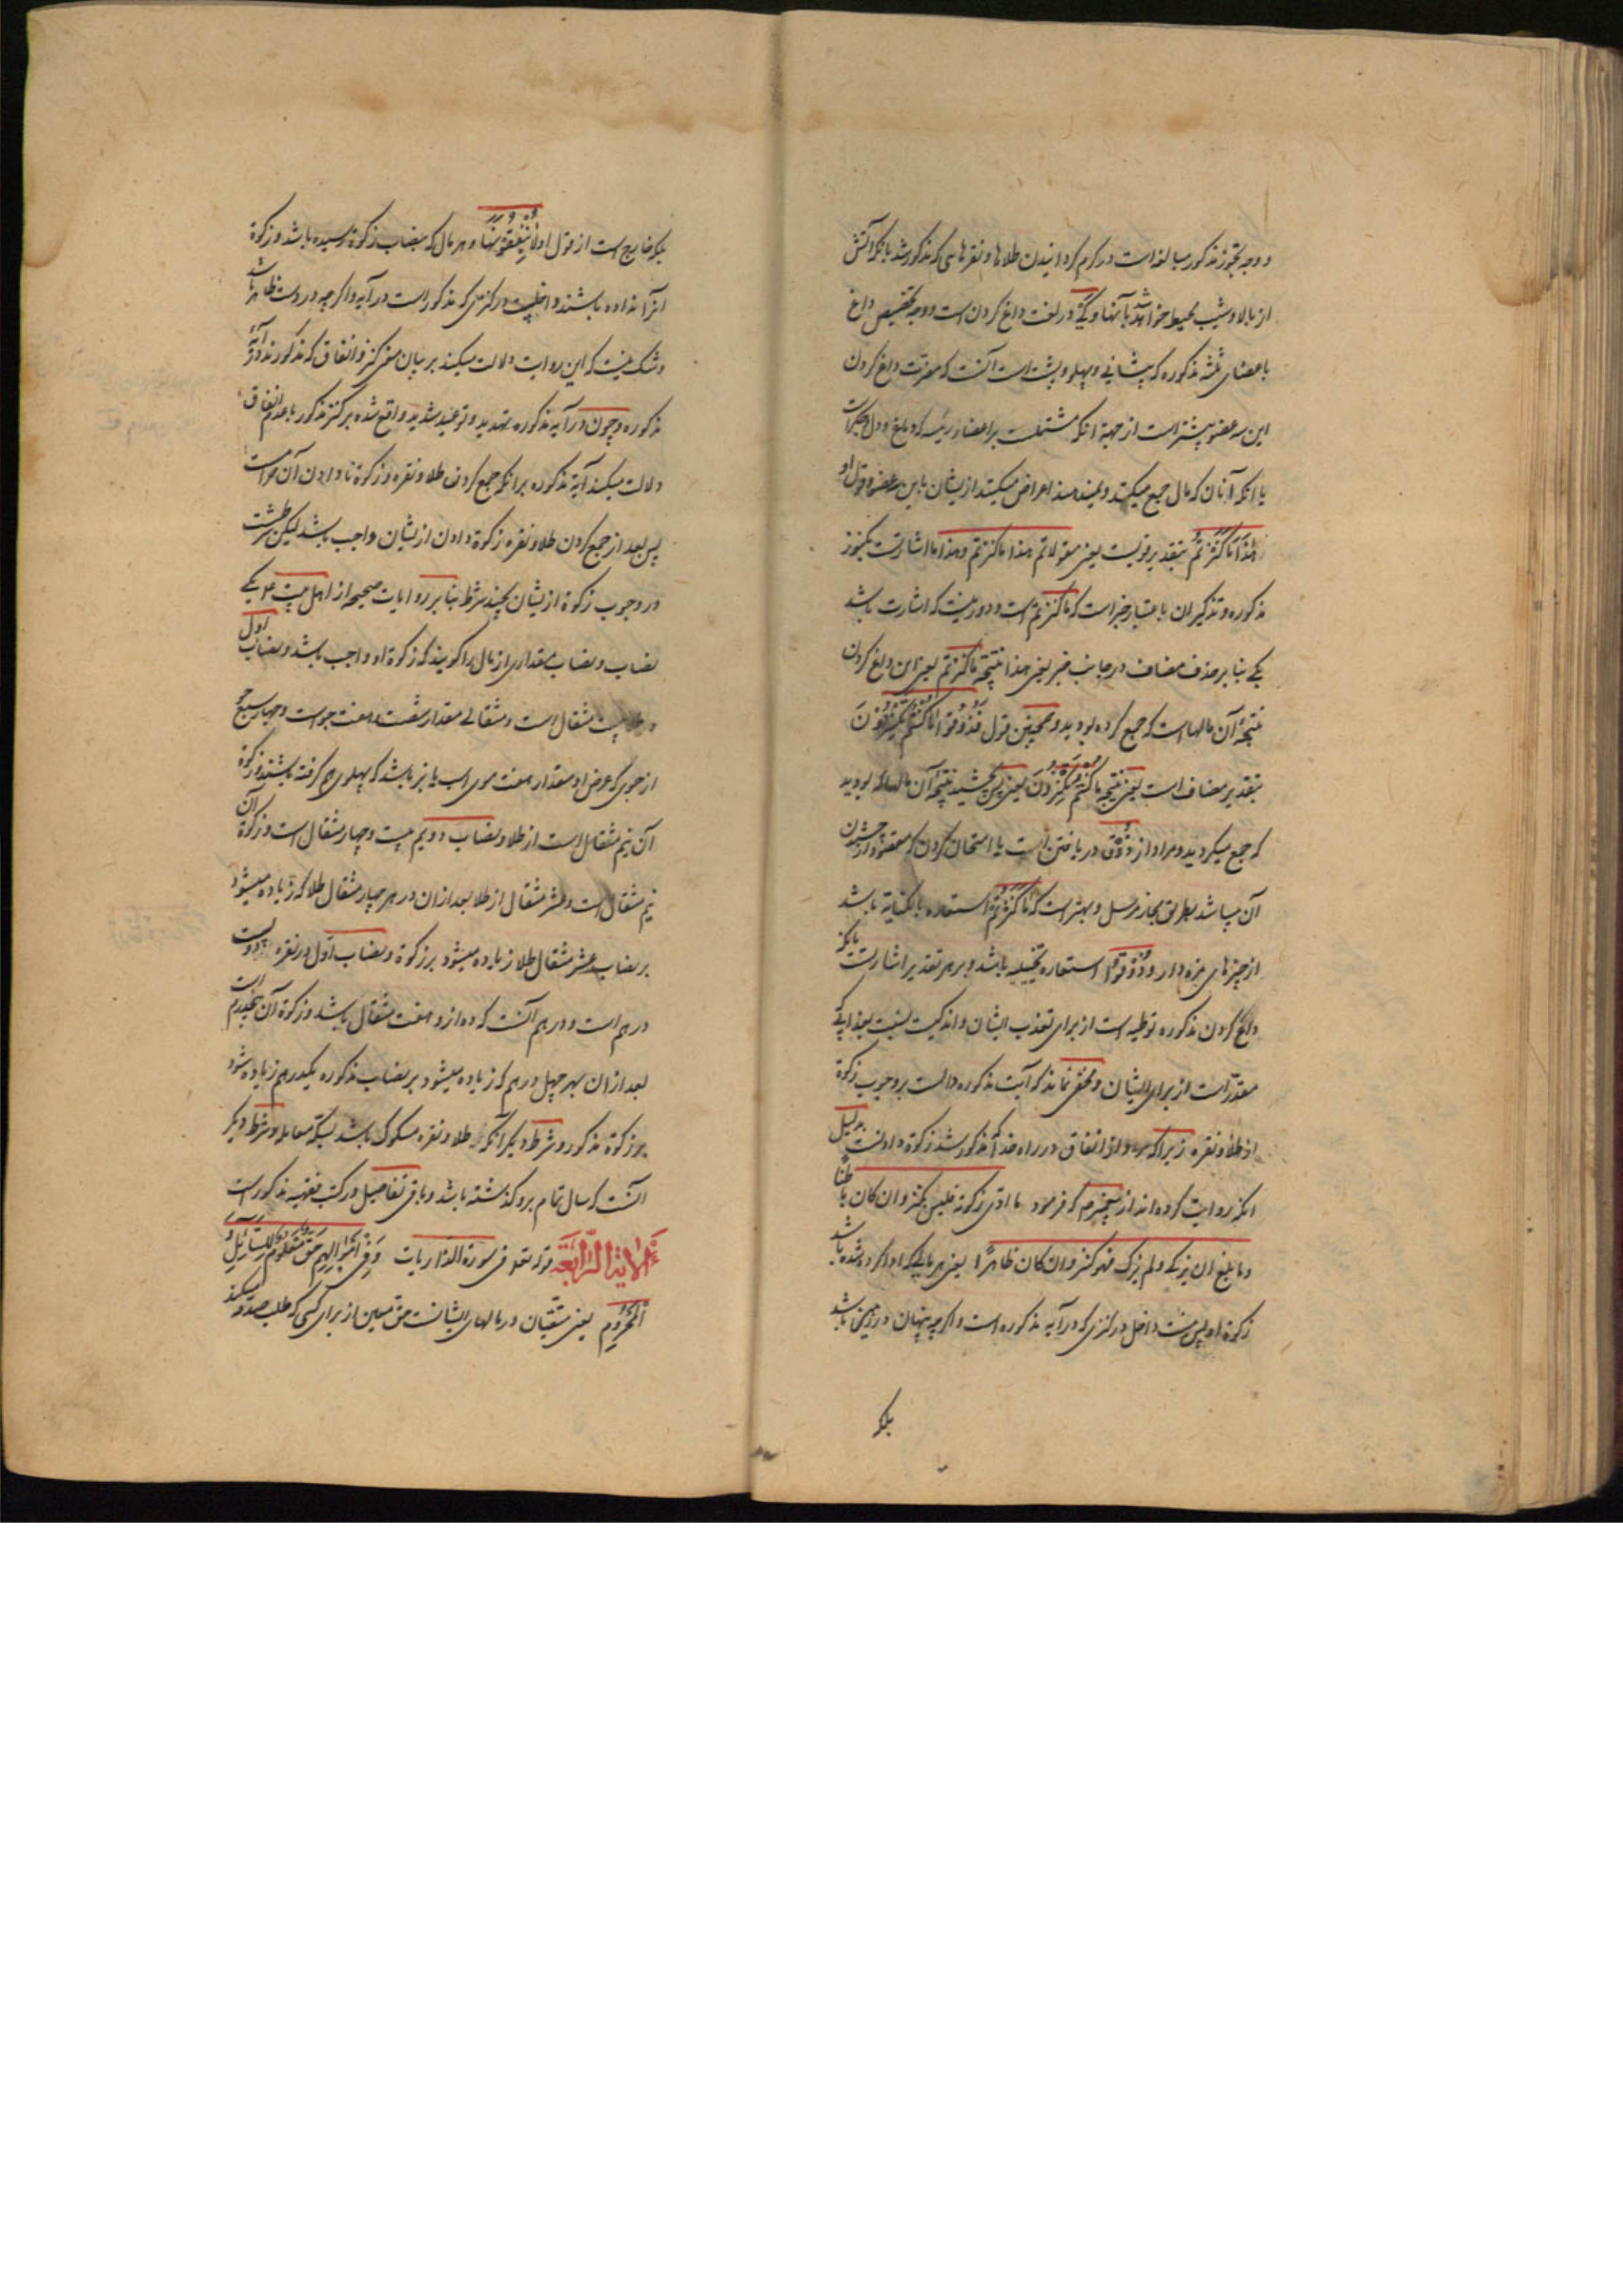 و وجه تجوز مذکور مبالغه است در گرم کردانیدن طلاها و نقرهائی که مذکور شد بانکه آتش
از بالا و شیب محیط خواهد شد بآنها و کی در لغت داغ کردن است و وجه تخصیص داغ
باعضای ثلثه مذکوره که پیشانی و پهلو و پشت است آنست که مضرت داغ کردن
این سه عضو بیشتر است از جهة انکه مشتملست بر اعضاء رئیسه که دماغ و دل و جگر است
یا انکه آنان که مال جمع میکنند و نمیدهند اعراض میکنند از یشان باین سه عضو و قول او
هٰذَا مَا كَنَزْتُمْ بتقدیر قولست یعنی مقولا لهم هذا ما کنزتم و هذا ما اشارتست بکنوز
مذکوره و تذکیر ان باعتبار خبر است که ما کنزتم است و دور نیست که اشارت باشد
بکی بنا بر حذف مضاف در جانب خبر یعنی هذا نتیجة ما کنزتم یعنی این داغ کردن
نتیجهٔ آن مالهاست که جمع کرده بودید و همچنین قول فَذُوقُوا مَا كُنْتُمْ تَكْنِزُونَ
بتقدیر مضاف است یعنی نتیجة ما كُنْتُمْ تَكْنِزُونَ یعنی پس بچشید نتیجهٔ آن مالها که بودید
که جمع میکردید و مراد از ذوق دریافتن است یا امتحان کردن که مقصود از چشیدن
آن میباشد بطریق مجاز مرسل و بهتر است که مَا كَنَزْتُمْ استعاره بالکنایة باشد
از چیزهای مزه دار و ذُوقُوا استعاره تخییلیه باشد و بر هر تقدیر اشارتست بانکه
داغ کردن مذکوره توطیه است از برای تعذیب ایشان و اندکیست بنسبت بعذابی که
مقدرست از برای ایشان و مخفی نماند که آیت مذکوره دالست بر وجوب زکوة
از طلا و نقره زیرا که مراد از انفاق در راه خدا که مذکور شد زکوة دادنست بدلیل
انکه روایت کرده‌اند از پیغمبرم که فرمود ما ادّی زکوته فلیس بکنز و ان کان باطنا
و ما بلغ ان یزکی و لم یزک فهو کنز و ان کان ظاهرًا یعنی هر مالی که ادا کرده شده باشد
زکوة او پس نیست داخل در کنزی که در آیه مذکوره است و اگر چه پنهان در زمین باشد
بلکه
بلکه خارج است از قول او لَا يُنْفِقُونَهَا و هر مال که بنصاب زکوة رسیده باشد و زکوة
انرا نداده باشند داخلست در کنزی که مذکور است در آیه و اگر چه در دست ظاهر باشد
و شک نیست که این روایت دلالت میکند بر بیان معنی کنز و انفاق که مذکورند در آیهٔ
مذکوره و چون در آیه مذکوره تهدید و توعید شدید واقع شده بر کنز مذکور با عدم انفاق
دلالت میکند آیه مذکوره بر انکه جمع کردن طلا و نقره و زکوة نا دادن آن حرامست
پس بعد از جمع کردن طلا و نقره زکوة دادن از یشان واجب باشد لیکن شرطست
در وجوب زکوة از یشان چند شرط بنا بر روایات صحیحه از اهل بیت ع یکی
نصاب و نصاب مقداری از مال را گویند که زکوة او واجب باشد و نصاب اول
در طلا بیست مثقال است و مثقالی مقدار شصت و هفت جو است و چهار سبع
از جوی که عرض او مقدار هفت موی اسب یابو باشد که پهلوی هم گرفته باشند و زکوة
آن نیم مثقال است از طلا و نصاب دویم بیست و چهار مثقال است و زکوة آن
نیم مثقال است و عشر مثقال از طلا بعد از ان در هر چهار مثقال طلا که زیاده میشود
بر نصاب عشر مثقال طلا زیاده میشود بر زکوة و نصاب اوّل در نقره دویست
درهم است و درهم آنست که ده از و هفت مثقال باشد و زکوة آن پنج درهم است
بعد از ان بهر چهل درهم که زیاده میشود بر نصاب مذکوره یکدرهم زیاده شود
بر زکوة مذکور و شرط دیگر آنکه طلا و نقره مسکوک باشد بسکهٔ معامله و شرط دیگر
انست که سال تمام برو گذشته باشد و باقی تفاصیل در کتب فقهیه مذکور است
اَلْآیَةُ الرَّابِعَة قوله تعه فی سورة الذاریات وَفِي أَمْوَالِهِمْ حَقٌّ مَعْلُومٌ لِلسَّائِلِ وَ
الْمَحْرُومِ یعنی متقیان در مالهای ایشانست حق معین از برای کسی که طلب صدقه میکند